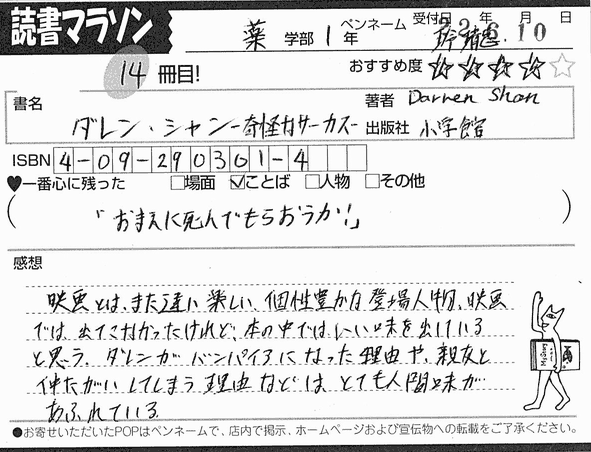 読書マラソン
薬 学部 1 年 ペンネーム 受付日 2 年 6 月 10 日
14 冊目! おすすめ度 ★★★★☆
書名 著者 Darren Shan
ダレン・シャン-奇怪なサーカス- 出版社 小学館
ISBN 4-09-290301-4
♥一番心に残った □場面 ☑ことば □人物 □その他
(「おまえに死んでもらおうか!」)
感想
映画とは、また違い楽しい、個性豊かな登場人物、映画
では出てこなかったけれど、本の中ではいい味を出している
と思う。ダレンがバンパイアになった理由や、親友と
仲たがいしてしまう理由などは、とても人間味が
あふれている
●お寄せいただいたPOPはペンネームで、店内で掲示、ホームページおよび宣伝物への転載をご了承ください。